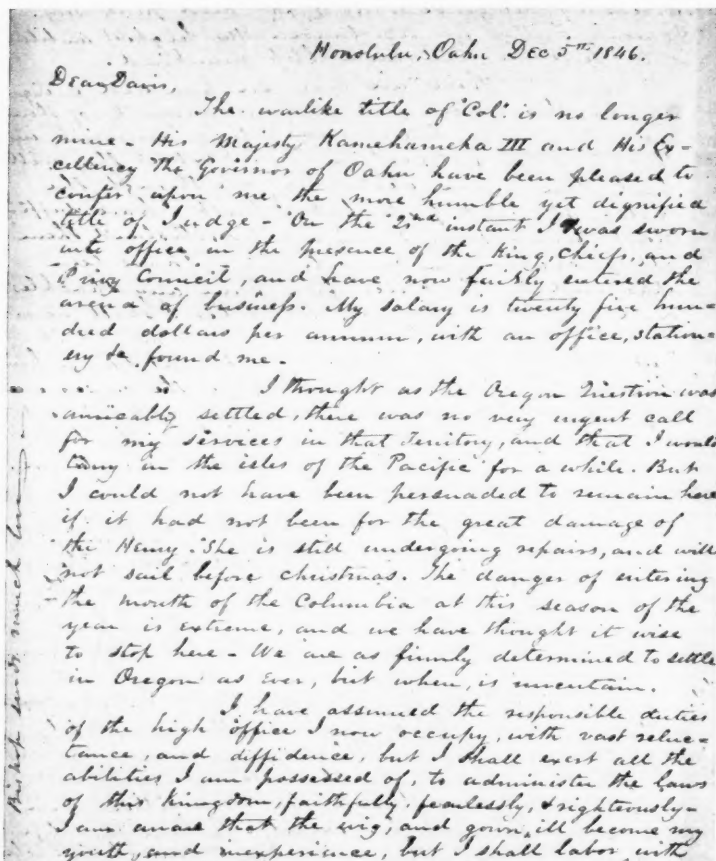 Honolulu, Oahu Dec 5th 1846.
Dear Davis,
The warlike title of Col. is no longer
mine - His Majesty Kamehameha III and His Ex-
cellency The Govirnor of Oahu have been pleased to
confer upon me the more humble yet dignified
title of Judge - On the 2nd instant I was sworn
into office in the presence of the King, Chiefs, and
Privy Council, and have now fairly entered the
arena of business. My salary is twenty five hun-
dred dollars per annum, with an office, station-
ery &c, found me.
I thought as the Oregon Question was
amicably settled, there was no very urgent call
for my services in that Territory, and that I would
tarry in the isles of the Pacific for a while. But
I could not have been persuaded to remain here
if it had not been for the great damage of
the Henry. She is still undergoing repairs, and will
not sail before christmas. The danger of entering
the mouth of the Columbia at this season of the
year is extreme, and we have thought it wise
to stop here - We are as firmly determined to settle
in Oregon as ever, but when, is uncertain.
I have assumed the responsible duties
of the high office I now occupy, with vast reluc-
tance, and diffidence, but I shall exert all the
abilities I am possessed of, to administer the laws
of this Kingdom, faithfully, fearlessly, & righteously -
I am aware that the wig, and gown, ill become my
youth, and inexperience, but I shall labor with
Bishop sends much love